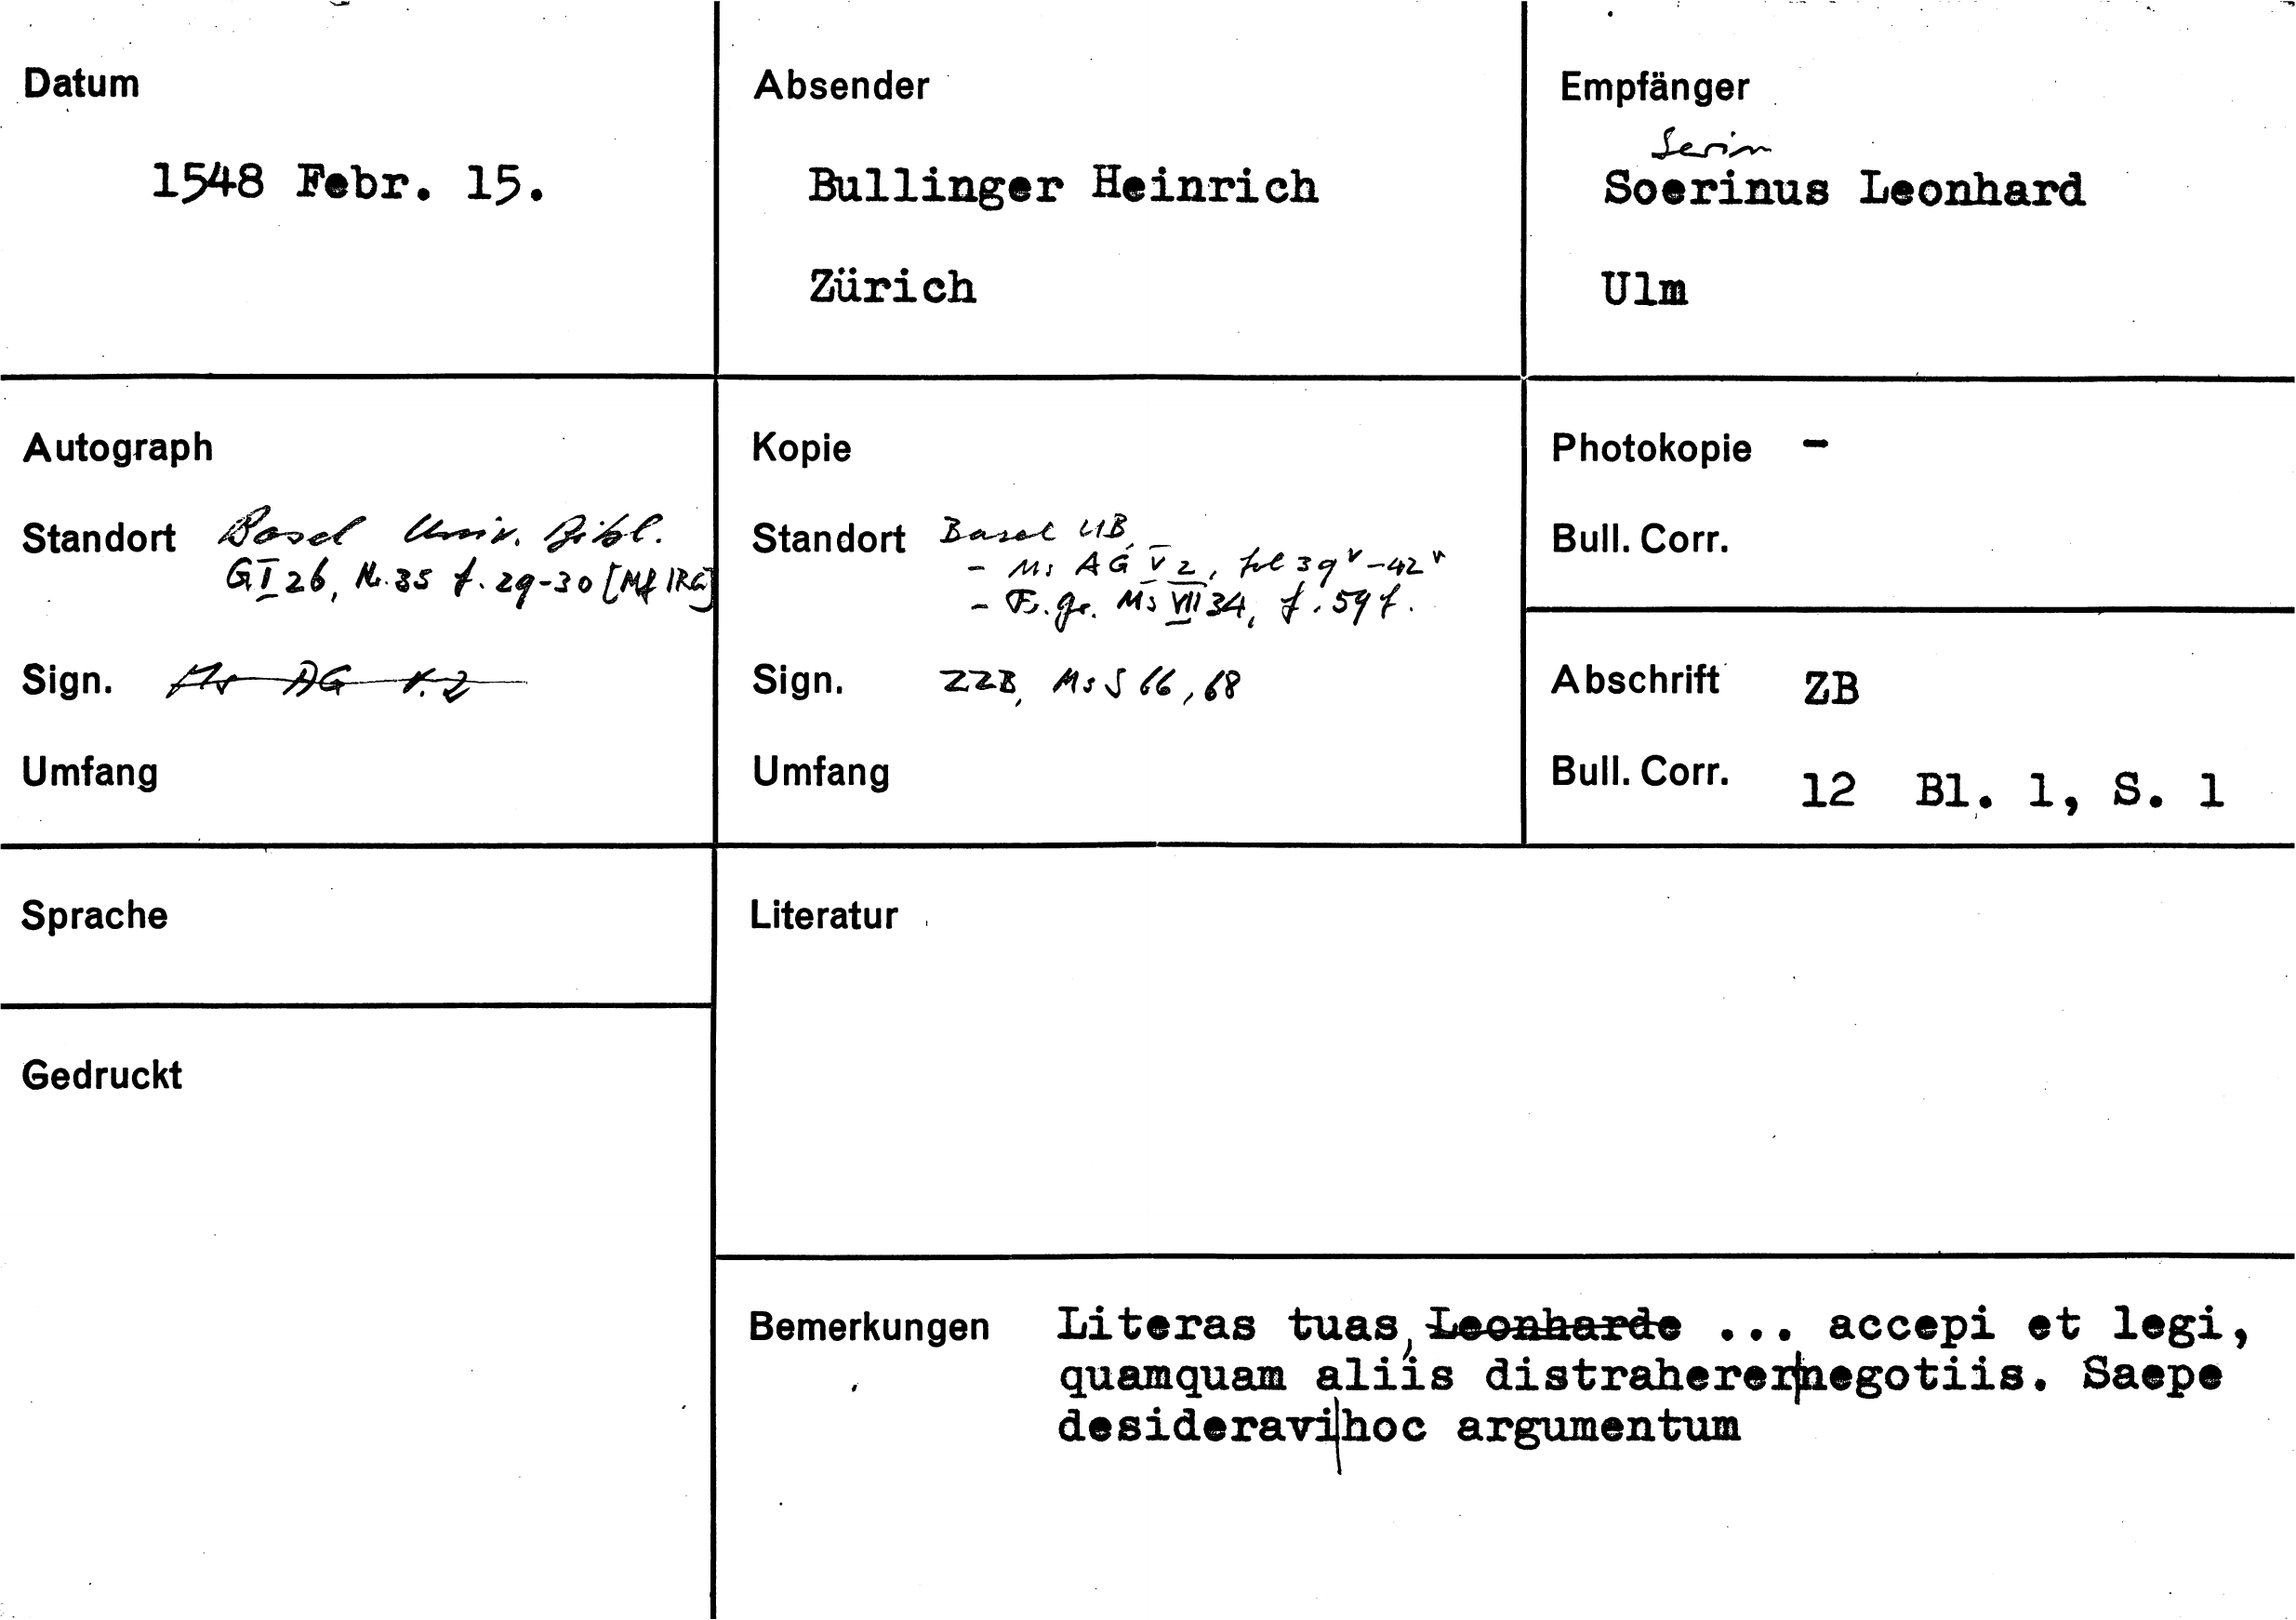 Datum
1548 Febr. 15.
Absender
Bullinger Heinrich
Zürich
Empfänger
Serin
Soerinus Leonhard
Ulm
Autograph
Standort Basel Univ. Bibl.
G I 26, Nr. 35 f. 29-30 [Mf IRG]
Sign. Ms AG V. 2
Umfang
Kopie
Standort Basel UB,
- Ms AG V 2, fol 39v-42v
- Fr. gr. Ms VII 34, f. 59 f.
Sign. ZZB, Ms S 66, 68
Umfang
Photokopie -
Bull. Corr.
Abschrift ZB
Bull. Corr. 12 Bl. 1, S. 1
Sprache
Gedruckt
Literatur
Bemerkungen Literas tuas, Leonharde ... accepi et legi,
quamquam aliis distraherer negotiis. Saepe
desideravi hoc argumentum